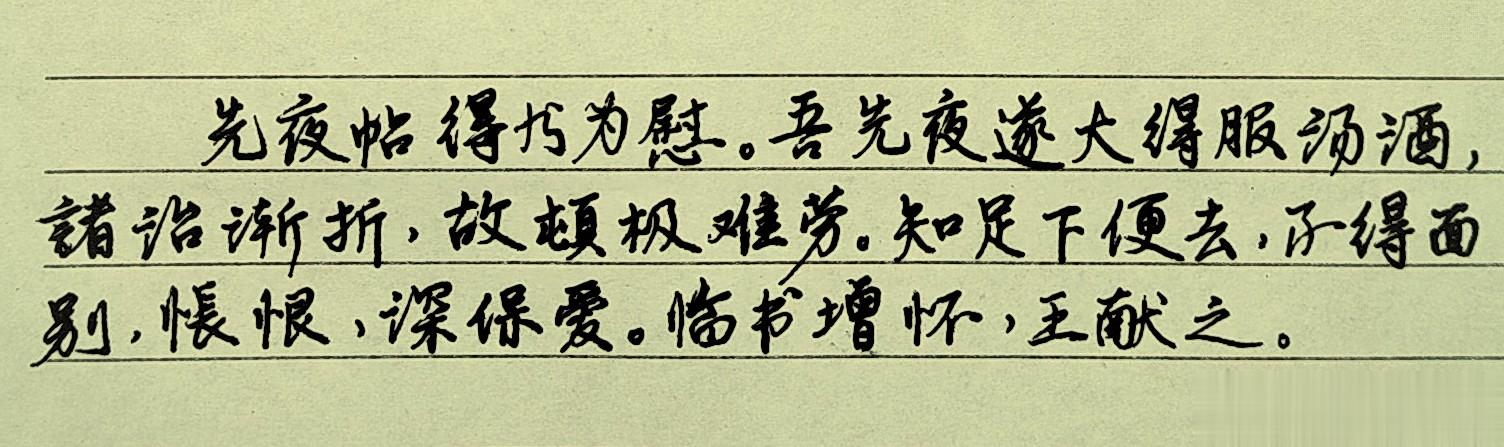 先夜帖得书为慰。吾先夜遂大得服汤酒，
諸治渐折，故頓极难劳。知足下便去，不得面
别，悵恨，深保爱。临书增怀，王献之。